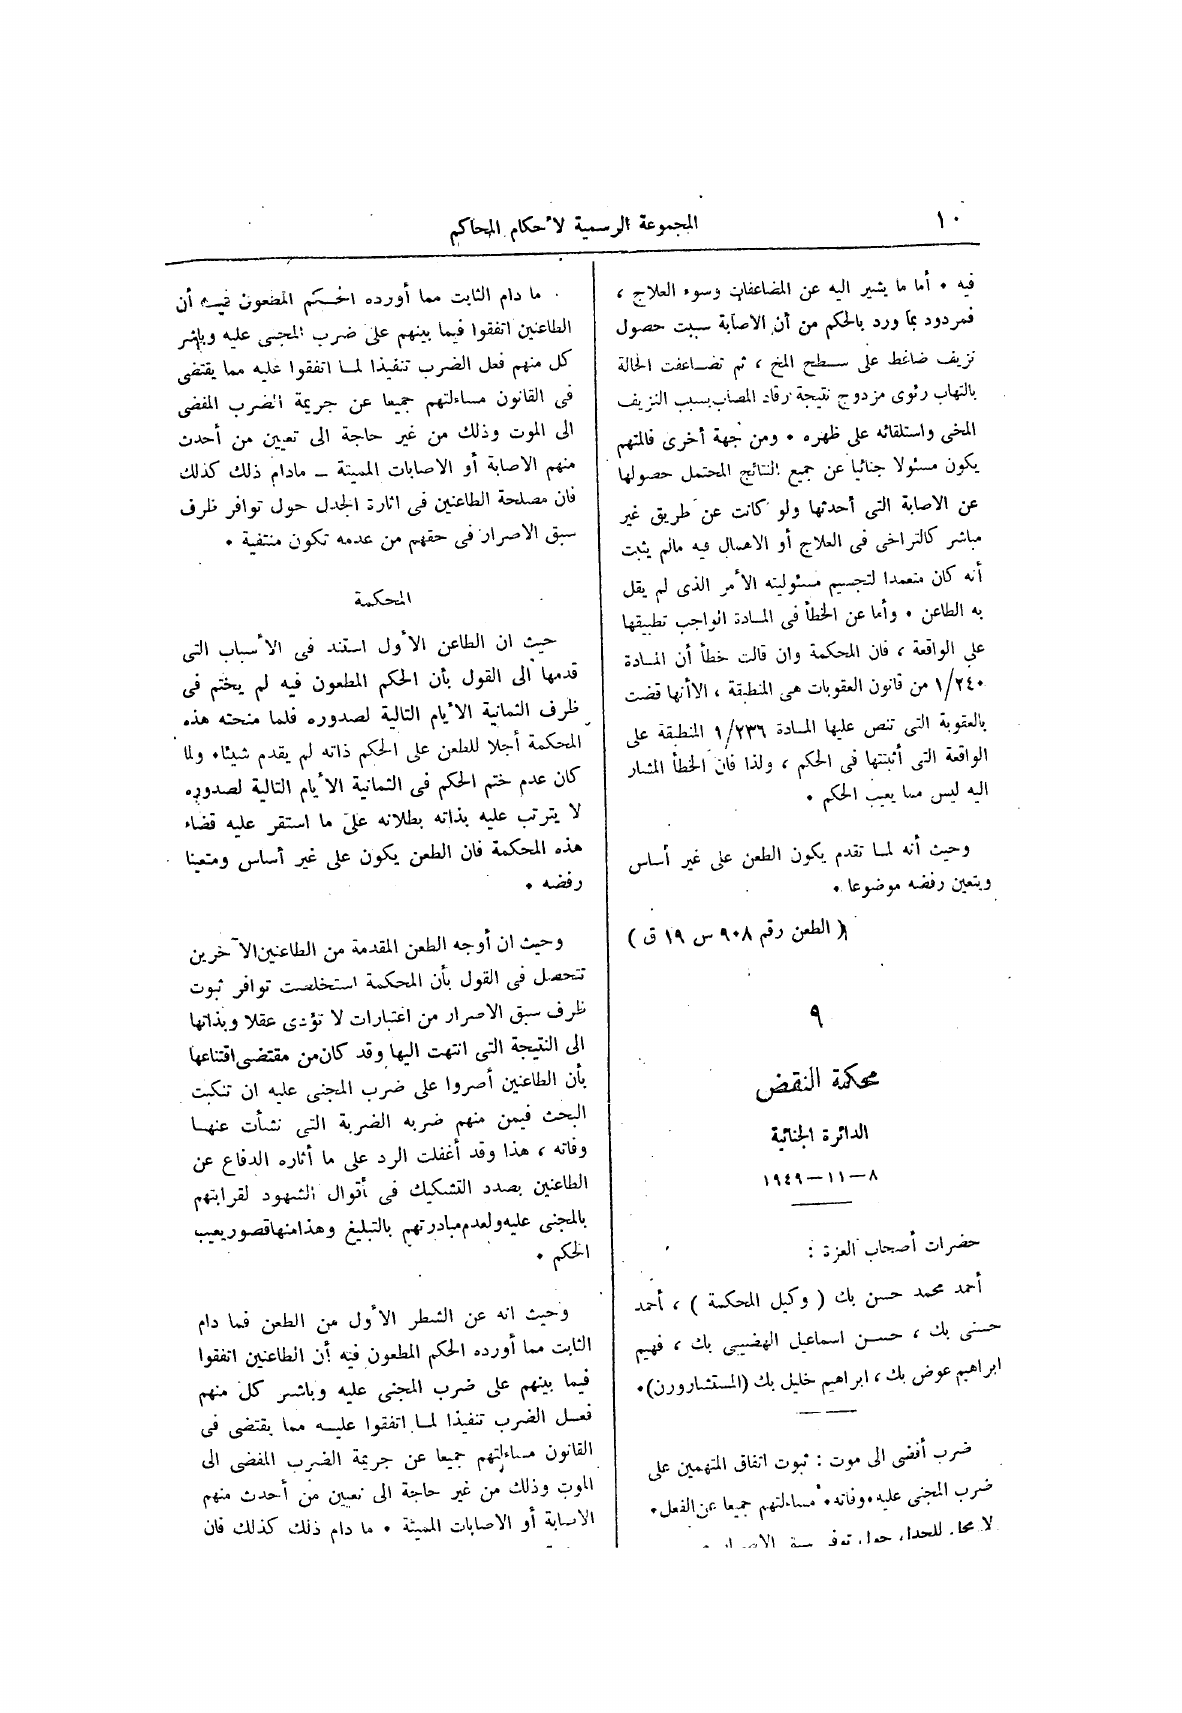 ١٠
المجموعة الرسمية لأحكام المحاكم
فيه • أما ما يشير اليه عن المضاعفات وسوء العلاج ،
فمردود بما ورد بالحكم من أن الاصابة سببت حصول
نزيف ضاغط على سطح المخ ، ثم تضاعفت الحالة
بالتهاب رئوى مزدوج نتيجة رقاد المصاب بسبب النزيف
المخى واستلقائه على ظهره • ومن جهة أخرى فالمتهم
يكون مسئولا جنائيا عن جميع النتائج المحتمل حصولها
عن الاصابة التى أحدثها ولو كانت عن طريق غير
مباشر كالتراخى فى العلاج أو الاهمال فيه مالم يثبت
أنه كان متعمدا لتجسيم مسئوليته الأمر الذى لم يقل
به الطاعن • وأما عن الخطأ فى المادة الواجب تطبيقها
على الواقعة ، فان المحكمة وان قالت خطأ أن المادة
١/٢٤٠ من قانون العقوبات هى المنطبقة ، الاأنها قضت
بالعقوبة التى تنص عليها المادة ١/٢٣٦ المنطبقة على
الواقعة التى أثبتتها فى الحكم ، ولذا فان الخطأ المشار
اليه ليس مما يعيب الحكم •
وحيث أنه لما تقدم يكون الطعن على غير أساس
ويتعين رفضه موضوعا •
( الطعن رقم ٩٠٨ س ١٩ ق )
٩
محكمة النقض
الدائرة الجنائية
٨ – ١١ – ١٩٤٩
حضرات أصحاب العزة :
أحمد محمد حسن بك ( وكيل المحكمة ) ، أحمد
حسنى بك ، حسن اسماعيل الهضيبى بك ، فهيم
ابراهيم عوض بك ، ابراهيم خليل بك (المستشارورن)•
ضرب أفضى الى موت : ثبوت اتفاق المتهمين على
ضرب المجنى عليه•وفاته• مساءلتهم جميعا عن الفعل•
لا محل للجدل حول توفر سبق الاصرار
ما دام الثابت مما أورده الحكم المطعون فيه أن
الطاعنين اتفقوا فيما بينهم على ضرب المجنى عليه وباشر
كل منهم فعل الضرب تنفيذا لما اتفقوا عليه مما يقتضى
فى القانون مساءلتهم جميعا عن جريمة الضرب المفضى
الى الموت وذلك من غير حاجة الى تعيين من أحدث
منهم الاصابة أو الاصابات المميتة – مادام ذلك كذلك
فان مصلحة الطاعنين فى اثارة الجدل حول توافر ظرف
سبق الاصرار فى حقهم من عدمه تكون منتفية •
المحكمة
حيث ان الطاعن الأول استند فى الأسباب التى
قدمها الى القول بأن الحكم المطعون فيه لم يختم فى
ظرف الثمانية الأيام التالية لصدوره فلما منحته هذه
المحكمة أجلا للطعن على الحكم ذاته لم يقدم شيئا• ولما
كان عدم ختم الحكم فى الثمانية الأيام التالية لصدوره
لا يترتب عليه بذاته بطلانه على ما استقر عليه قضاء
هذه المحكمة فان الطعن يكون على غير أساس ومتعينا
رفضه •
وحيث ان أوجه الطعن المقدمة من الطاعنين الآخرين
تتحصل فى القول بأن المحكمة استخلصت توافر ثبوت
ظرف سبق الاصرار من اعتبارات لا تؤدى عقلا وبذاتها
الى النتيجة التى انتهت اليها وقد كان من مقتضى اقتناعها
بأن الطاعنين أصروا على ضرب المجنى عليه ان تنكبت
البحث فيمن منهم ضربه الضربة التى نشأت عنها
وفاته ، هذا وقد أغفلت الرد على ما أثاره الدفاع عن
الطاعنين بصدد التشكيك فى أقوال الشهود لقرابتهم
بالمجنى عليه ولعدم مبادرتهم بالتبليغ وهذا منها قصور يعيب
الحكم •
وحيث انه عن الشطر الأول من الطعن فما دام
الثابت مما أورده الحكم المطعون فيه أن الطاعنين اتفقوا
فيما بينهم على ضرب المجنى عليه وباشر كل منهم
فعل الضرب تنفيذا لما اتفقوا عليه مما يقتضى فى
القانون مساءلتهم جميعا عن جريمة الضرب المفضى الى
الموت وذلك من غير حاجة الى تعيين من أحدث منهم
الاصابة أو الاصابات المميتة • ما دام ذلك كذلك فان